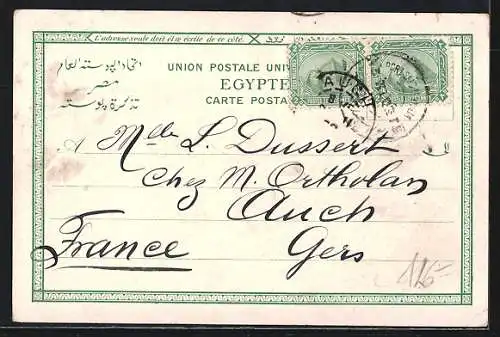 L'adresse seule doit être écrite de ce côté.
اتحاد البوسته العام
مصر
تذكرة بوسته
UNION POSTALE UNI
EGYPTE
CARTE POSTA
AUCH
A Mlle L. Dussert
Chez M. Ortholan
Auch
France Gers